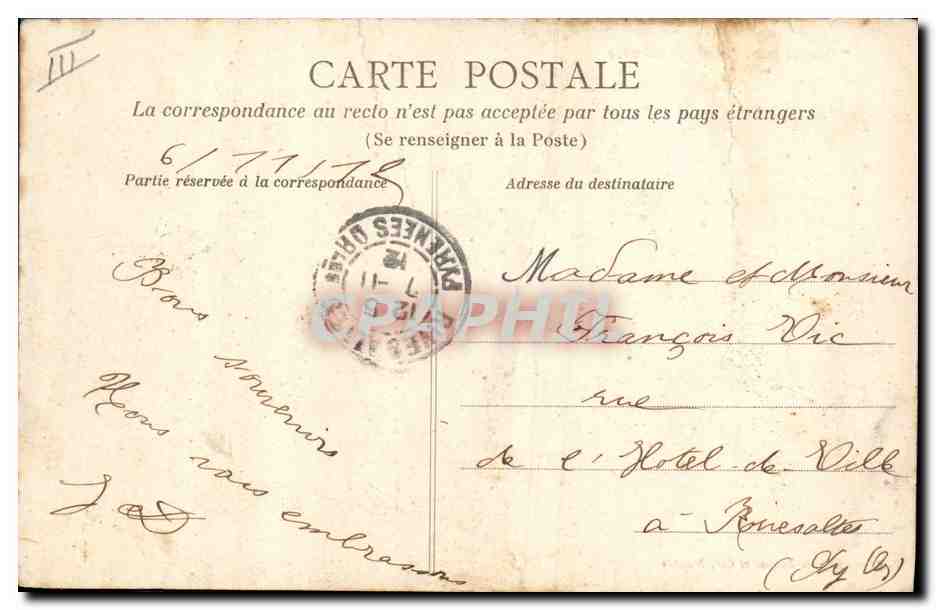 III
CARTE POSTALE
La correspondance au recto n'est pas acceptée par tous les pays étrangers
(Se renseigner à la Poste)
6/11/12
Partie réservée à la correspondance
Adresse du destinataire
PYRENEES ORLES
7 - 11
12
CPAPHIL
Bons
souvenirs
Nous vous embrassons
J D
Madame et Monsieur
François Vic
rue
de l'Hotel-de-Ville
à Rivesaltes
(Py Or)